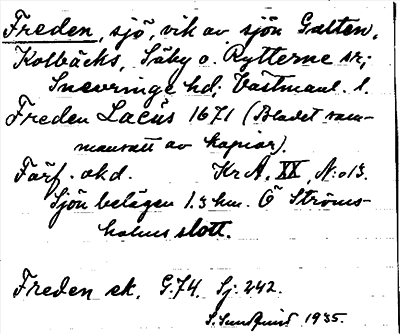 Freden, sjö, vik av sjön Galten,
Kolbäcks, Säby o. Rytterne sr;
Snevringe hd; Västmanl. l.
Freden Lacus 1671 (Bladet sam-
mansatt av kopior).
Förf. okd. Kr A. XX, N:o 13.
Sjön belägen 1.3 km. Ö Ströms-
holms slott.
Freden ek. G.74. Sj. 242.
S. Sundqvist 1935.